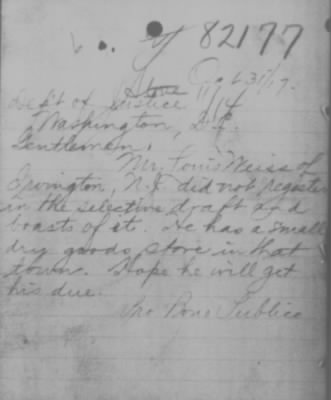 82177
Oct 31/17.
Dep't of Justice
Washington, D.C.
Gentlemen:
Mr. Louis Weiss of
Irvington, N.J. did not register
in the selective draft and
boasts of it. He has a small
dry goods store in that
town. Hope he will get
his due.
Pro Bono Publico